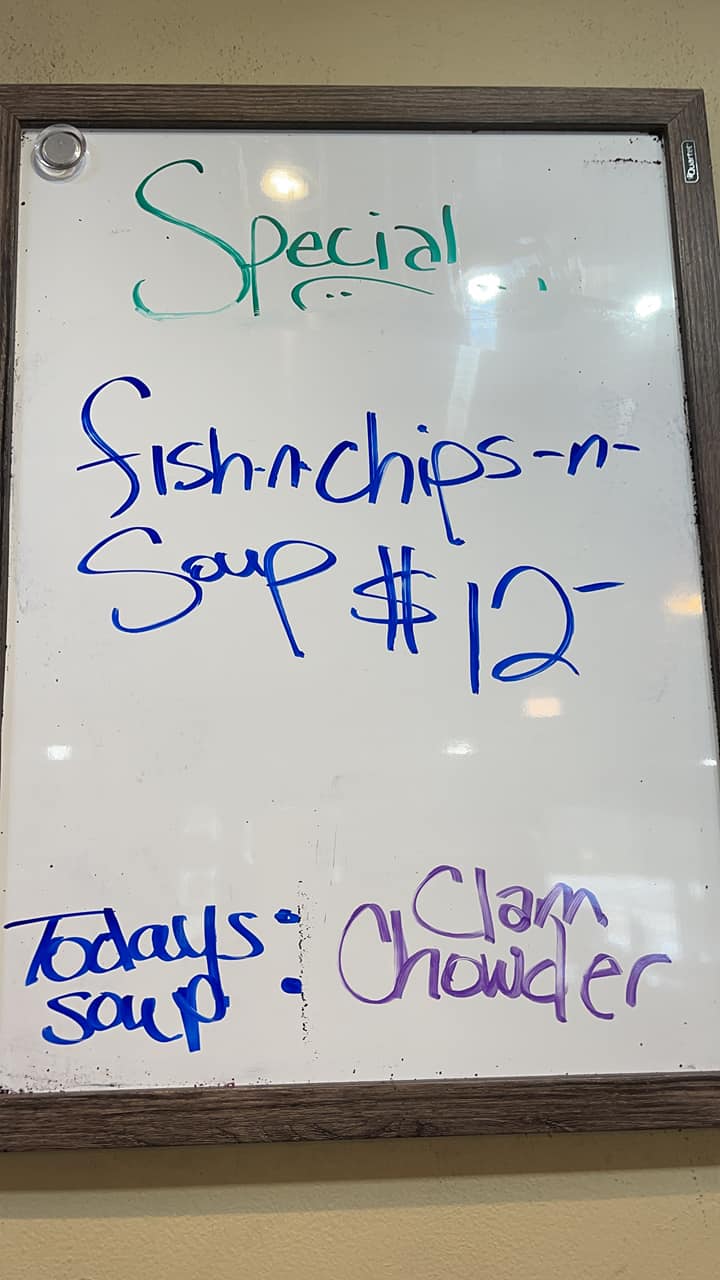 Quartet
Special...
fish-n-chips-n-
Soup $12-
Todays
soup:
Clam
Chowder